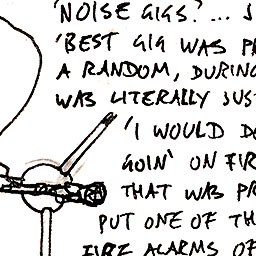 'NOISE GIGS?'... J
'BEST GIG WAS PR
A RANDOM, DURING
WAS LITERALLY JUST
'I WOULD DE
GOIN' ON FIR
THAT WAS PR
PUT ONE OF TH
FIRE ALARMS OF